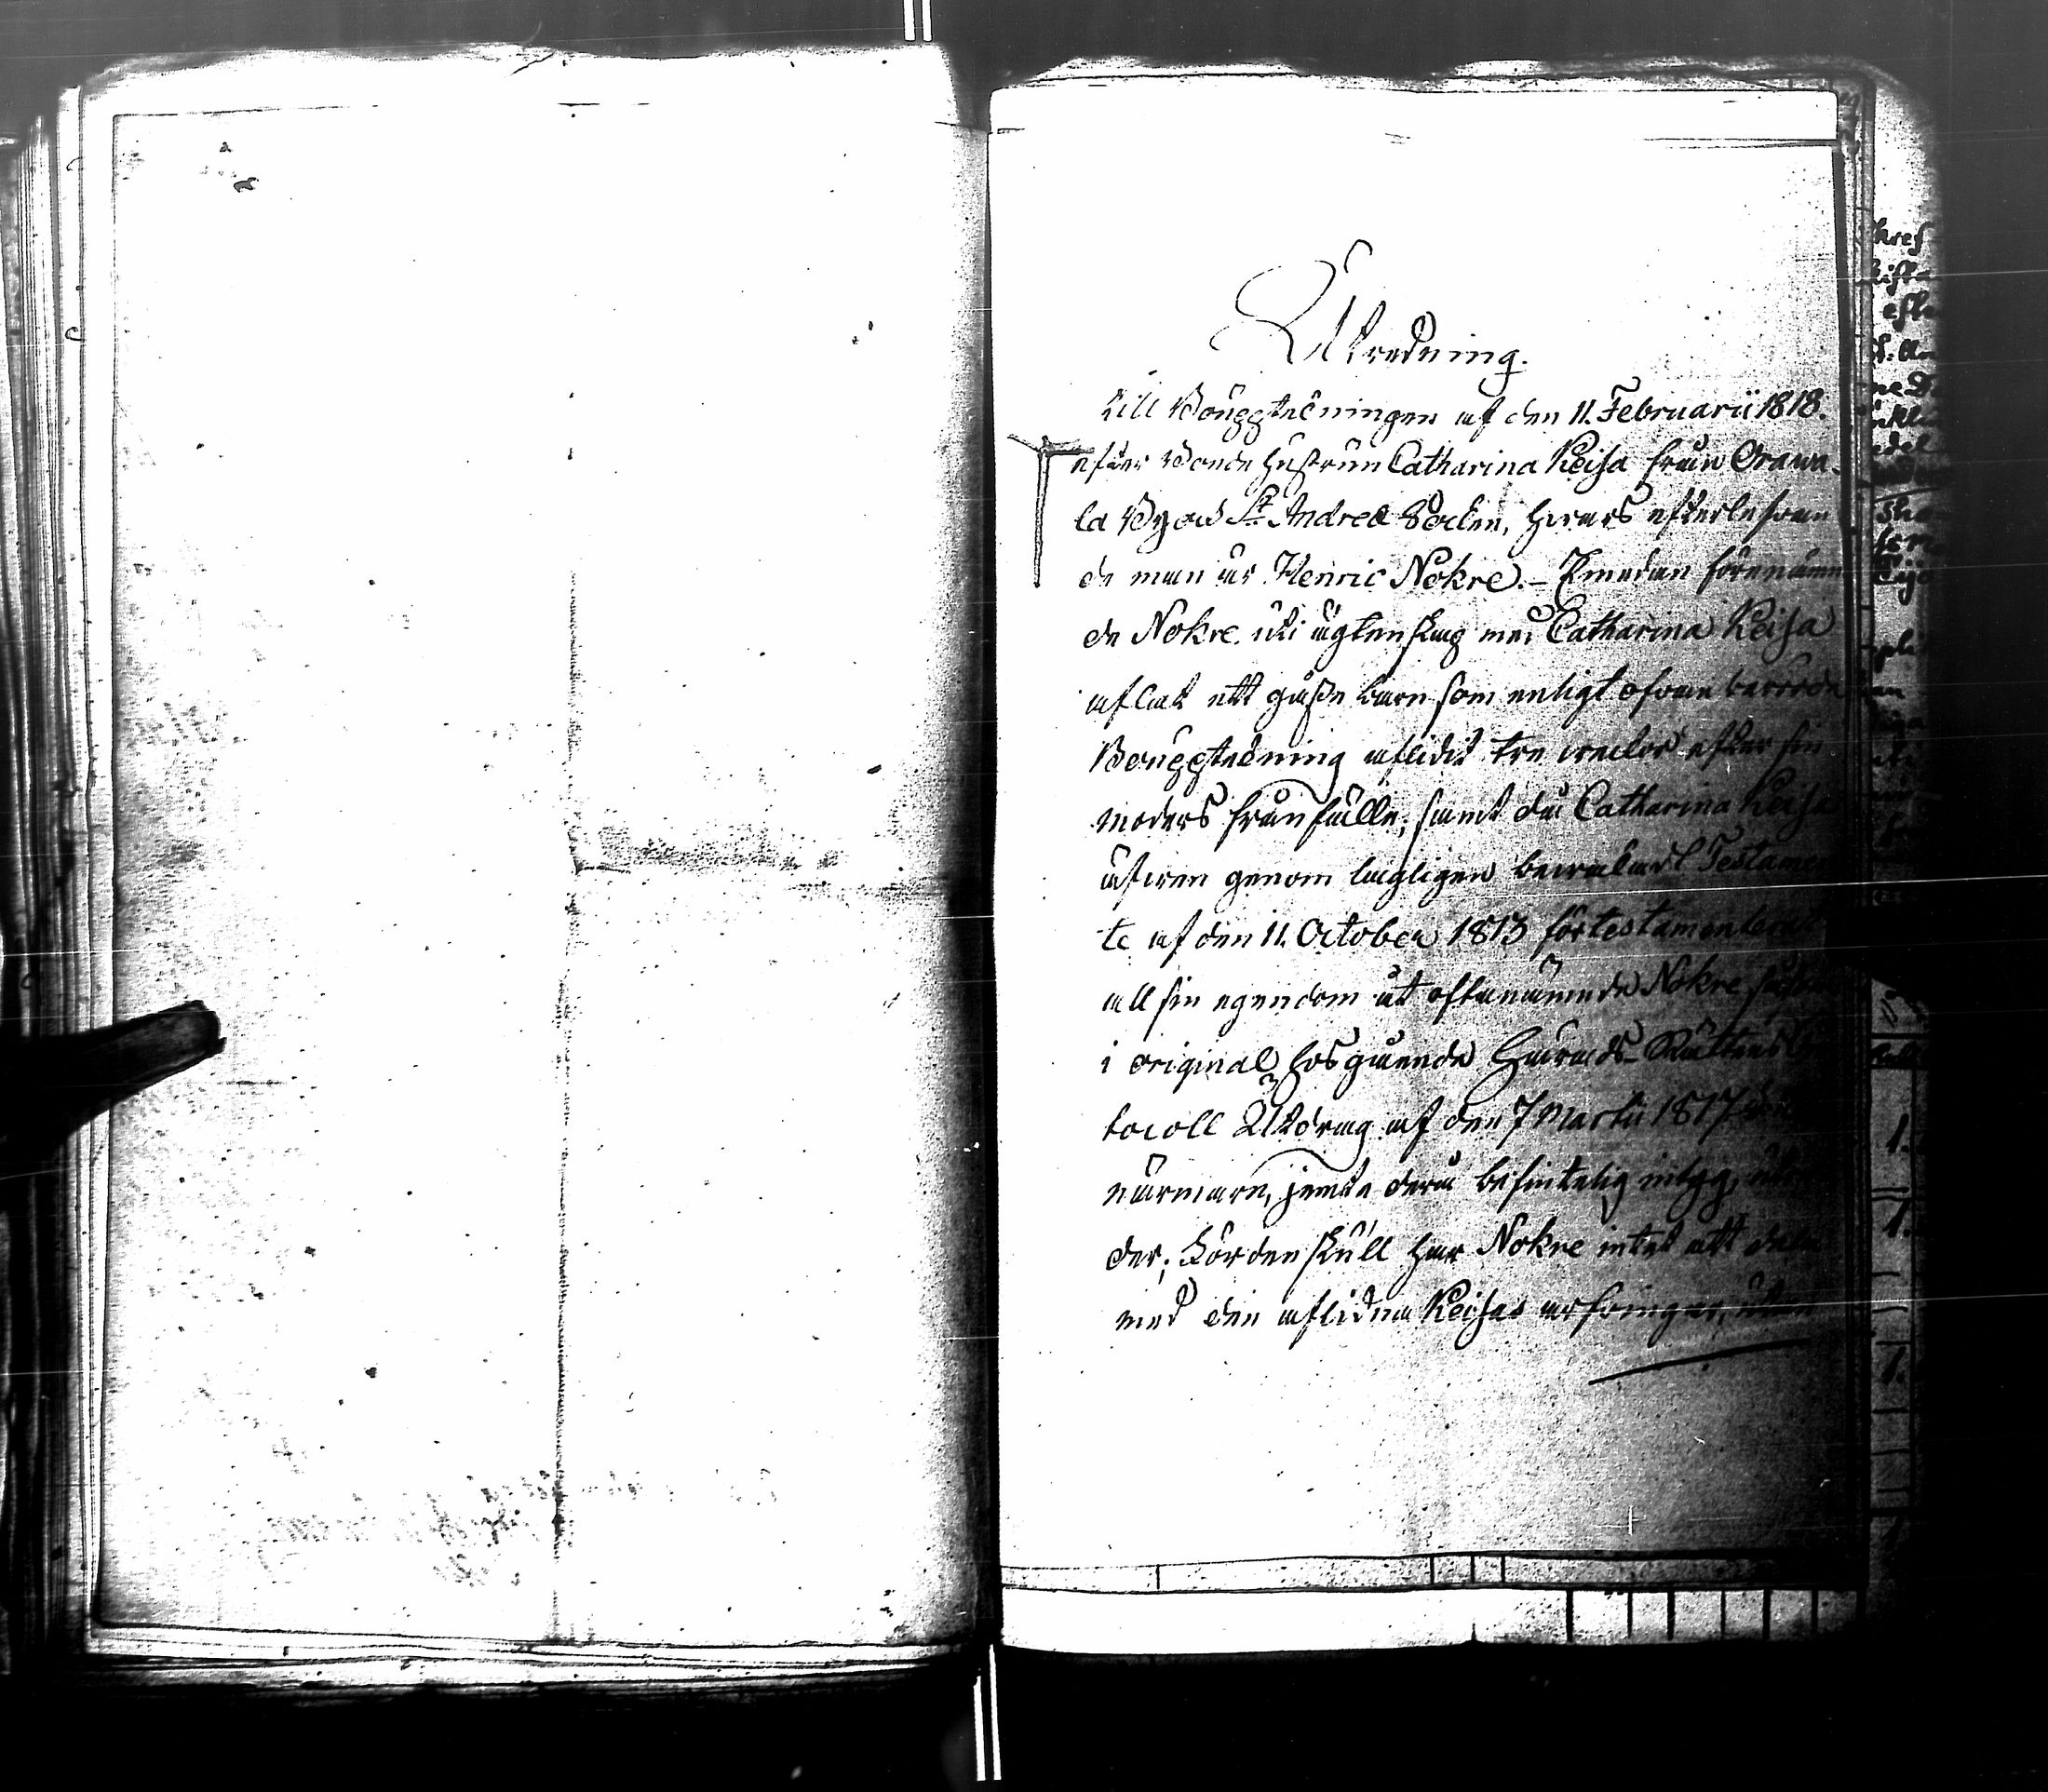 Utredning.
till Bouppteckningen af den 11. Februarii 1818.
efter Bonde hustrun Catharina Keisa från Orawa-
la Byaws St. Andreæ Socken, hwars efterlefwan
de man är Henric Nokre. – Emedan förenämn
de Nokre uti ägtenskap med Catharina Keisa
aflat ett gåsse barn som enligt ofwan berörde
Bouppteckning aflidit tre weckor efter sin
moders frånfälle; samt då Catharina Keisa
äfwen genom lagligen bewakadt Testamen
te af den 11. October 1813 förtestamenterat
all sin egendom åt oftanämnde Nokre,
i original hosgående Härads-Rättens
tocoll Utdrag af den 7 Martii 1817
närmare, jemte derå befintelig
der; Fördenskull har Nokre intet att dela
med den aflidna Keisas arfwingar, utan